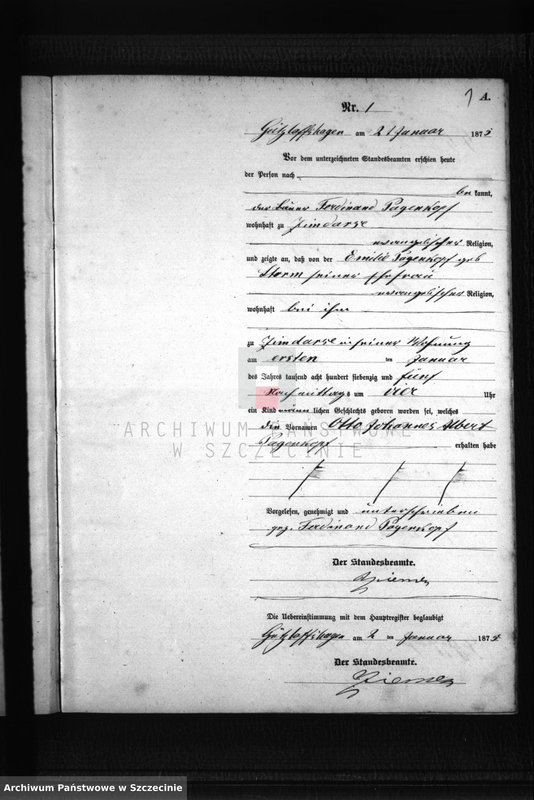 1 A.
Nr. 1
Gützlaffshagen am 2 Januar 1875
Vor dem unterzeichneten Standesbeamten erschien heute
der Person nach
be kannt,
der Bauer Ferdinand Pagenkopf
wohnhaft zu Zimdarse
evangelischer Religion,
und zeigte an, daß von der Emilie Pagenkopf geb
Storm seiner Ehefrau
evangelischer Religion,
wohnhaft bei ihm
zu Zimdarse in seiner Wohnung
am ersten ten Januar
des Jahres tausend acht hundert siebenzig und fünf
Nachmittags um vier Uhr
ein Kind männ lichen Geschlechts geboren worden sei, welches
die Vornamen Otto Johannes Albert
Pagenkopf erhalten habe
Vorgelesen, genehmigt und unterschrieben
gez. Ferdinand Pagenkopf
Der Standesbeamte.
Ziemer
Die Uebereinstimmung mit dem Hauptregister beglaubigt
Gützlaffshagen am 2 ten Januar 1875
Der Standesbeamte.
Ziemer
ARCHIWUM PAŃSTWOWE
W SZCZECINIE
Archiwum Państwowe w Szczecinie